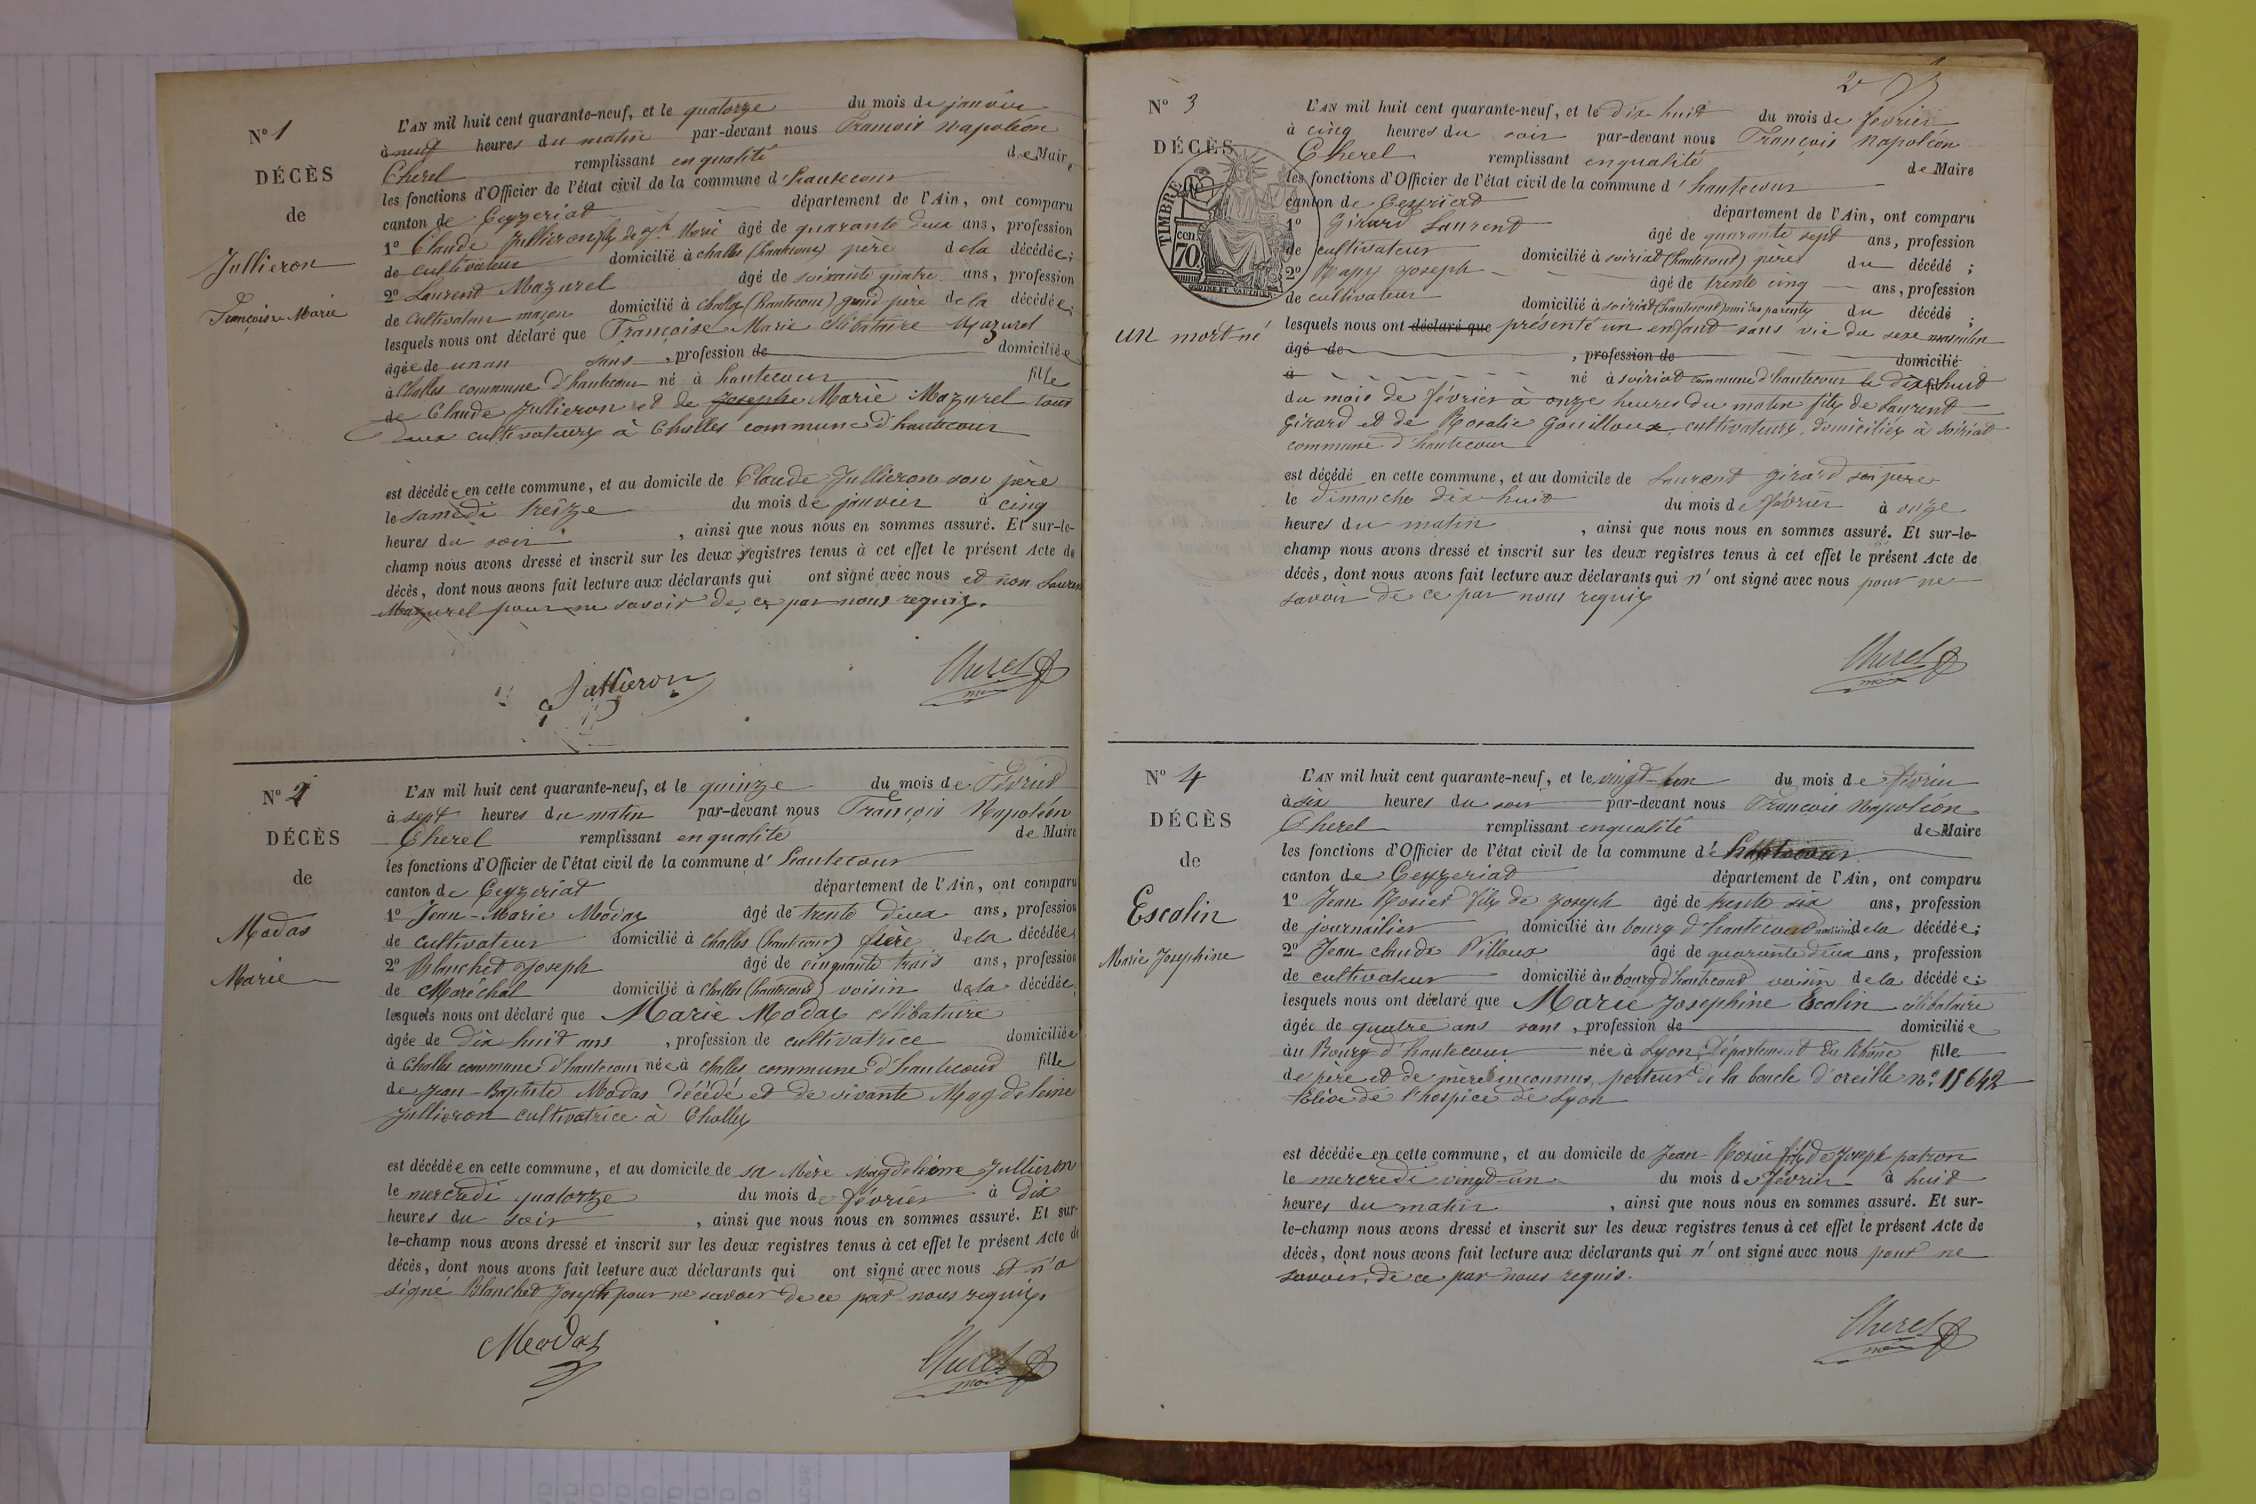 N° 1
DÉCÈS
de
Jullieron
Françoise Marie
L'AN mil huit cent quarante-neuf, et le quatorze du mois de janvier
à neuf heures du matin par-devant nous François Napoléon
Cherel remplissant en qualité de Maire
les fonctions d'Officier de l'état civil de la commune d'hautecour
canton de Ceyzeriat département de l'Ain, ont comparu
1° Claude Jullieron fils de Marie âgé de quarante deux ans, profession
de cultivateur domicilié à challes (hautecour) père de la décédée;
2° Laurent Mazurel âgé de soixante quatre ans, profession
de cultivateur domicilié à challes (hautecour) grand père de la décédée;
lesquels nous ont déclaré que Françoise Marie célibataire Mazurel
âgée de un an sans, profession de domiciliée
à Challes commune d'hautecour né à hautecour fille
de Claude Jullieron et de Josephe Marie Mazurel tous
deux cultivateurs à Challes commune d'hautecour
est décédée en cette commune, et au domicile de Claude Jullieron son père
le samedi treize du mois de janvier à cinq
heures du soir, ainsi que nous nous en sommes assuré. Et sur-le-
champ nous avons dressé et inscrit sur les deux registres tenus à cet effet le présent Acte de
décès, dont nous avons fait lecture aux déclarants qui ont signé avec nous et non Laurent
Mazurel pour ne savoir de ce par nous requis.
Jullieron Cherel
N° 2
DÉCÈS
de
Modas
Marie
L'AN mil huit cent quarante-neuf, et le quinze du mois de Février
à sept heures du matin par-devant nous François Napoléon
Cherel remplissant en qualité de Maire
les fonctions d'Officier de l'état civil de la commune d'hautecour
canton de Ceyzeriat département de l'Ain, ont comparu
1° Jean-Marie Modas âgé de trente deux ans, profession
de cultivateur domicilié à challes (hautecour) frère de la décédée;
2° Blanchet Joseph âgé de cinquante trois ans, profession
de Maréchal domicilié à challes (hautecour) voisin de la décédée;
lesquels nous ont déclaré que Marie Modas célibataire
âgée de dix huit ans, profession de cultivatrice domiciliée
à Challes commune d'hautecour née à challes commune d'hautecour fille
de Jean-Baptiste Modas décédé et de vivante Magdeleine
Jullieron cultivatrice à Challes
est décédée en cette commune, et au domicile de sa Mère Magdeleine Jullieron
le mercredi quatorze du mois de février à dix
heures du soir, ainsi que nous nous en sommes assuré. Et sur-
le-champ nous avons dressé et inscrit sur les deux registres tenus à cet effet le présent Acte de
décès, dont nous avons fait lecture aux déclarants qui ont signé avec nous et n'a
signé Blanchet Joseph pour ne savoir de ce par nous requis.
Modas Cherel
N° 3
DÉCÈS
TIMBRE
70
un mort né
L'AN mil huit cent quarante-neuf, et le dix huit du mois de février
à cinq heures du soir par-devant nous François Napoléon
Cherel remplissant en qualité de Maire
les fonctions d'Officier de l'état civil de la commune d'hautecour
canton de Ceyzeriat département de l'Ain, ont comparu
1° Girard Laurent âgé de quarante sept ans, profession
de cultivateur domicilié à soiriat (hautecour) père du décédé;
2° Joseph âgé de trente cinq ans, profession
de cultivateur domicilié à soiriat (hautecour) du décédé;
lesquels nous ont déclaré que présenté un enfant sans vie du sexe masculin
âgé de, profession de domicilié
à né à soiriat commune d'hautecour le dix huit
du mois de février à onze heures du matin fils de Laurent
Girard et de Rosalie Gouilloux, cultivateurs domiciliés à soiriat
commune d'hautecour
est décédé en cette commune, et au domicile de Laurent Girard son père
le dimanche dix huit du mois de février à onze
heures du matin, ainsi que nous nous en sommes assuré. Et sur-le-
champ nous avons dressé et inscrit sur les deux registres tenus à cet effet le présent Acte de
décès, dont nous avons fait lecture aux déclarants qui n'ont signé avec nous pour ne
savoir de ce par nous requis
Cherel
N° 4
DÉCÈS
de
Escalin
Marie Josephine
L'AN mil huit cent quarante-neuf, et le vingt-un du mois de février
à six heures du soir par-devant nous François Napoléon
Cherel remplissant en qualité de Maire
les fonctions d'Officier de l'état civil de la commune d'hautecour
canton de Ceyzeriat département de l'Ain, ont comparu
1° Jean Rosier fils de Joseph âgé de trente six ans, profession
de journalier domicilié au bourg d'hautecour de la décédée;
2° Jean claude Pilloux âgé de quarante deux ans, profession
de cultivateur domicilié au bourg d'hautecour voisin de la décédée;
lesquels nous ont déclaré que Marie Josephine Ecalin célibataire
âgée de quatre ans sans, profession de domiciliée
au Bourg d'hautecour née à Lyon, Département du Rhône fille
de père et de mère inconnus, porteur de la boucle d'oreille n°. 15642
Elève de l'hospice de Lyon
est décédée en cette commune, et au domicile de Jean Rosier fils de Joseph patron
le mercredi vingt-un du mois de février à huit
heures du matin, ainsi que nous nous en sommes assuré. Et sur-
le-champ nous avons dressé et inscrit sur les deux registres tenus à cet effet le présent Acte de
décès, dont nous avons fait lecture aux déclarants qui n'ont signé avec nous pour ne
savoir, de ce par nous requis.
Cherel